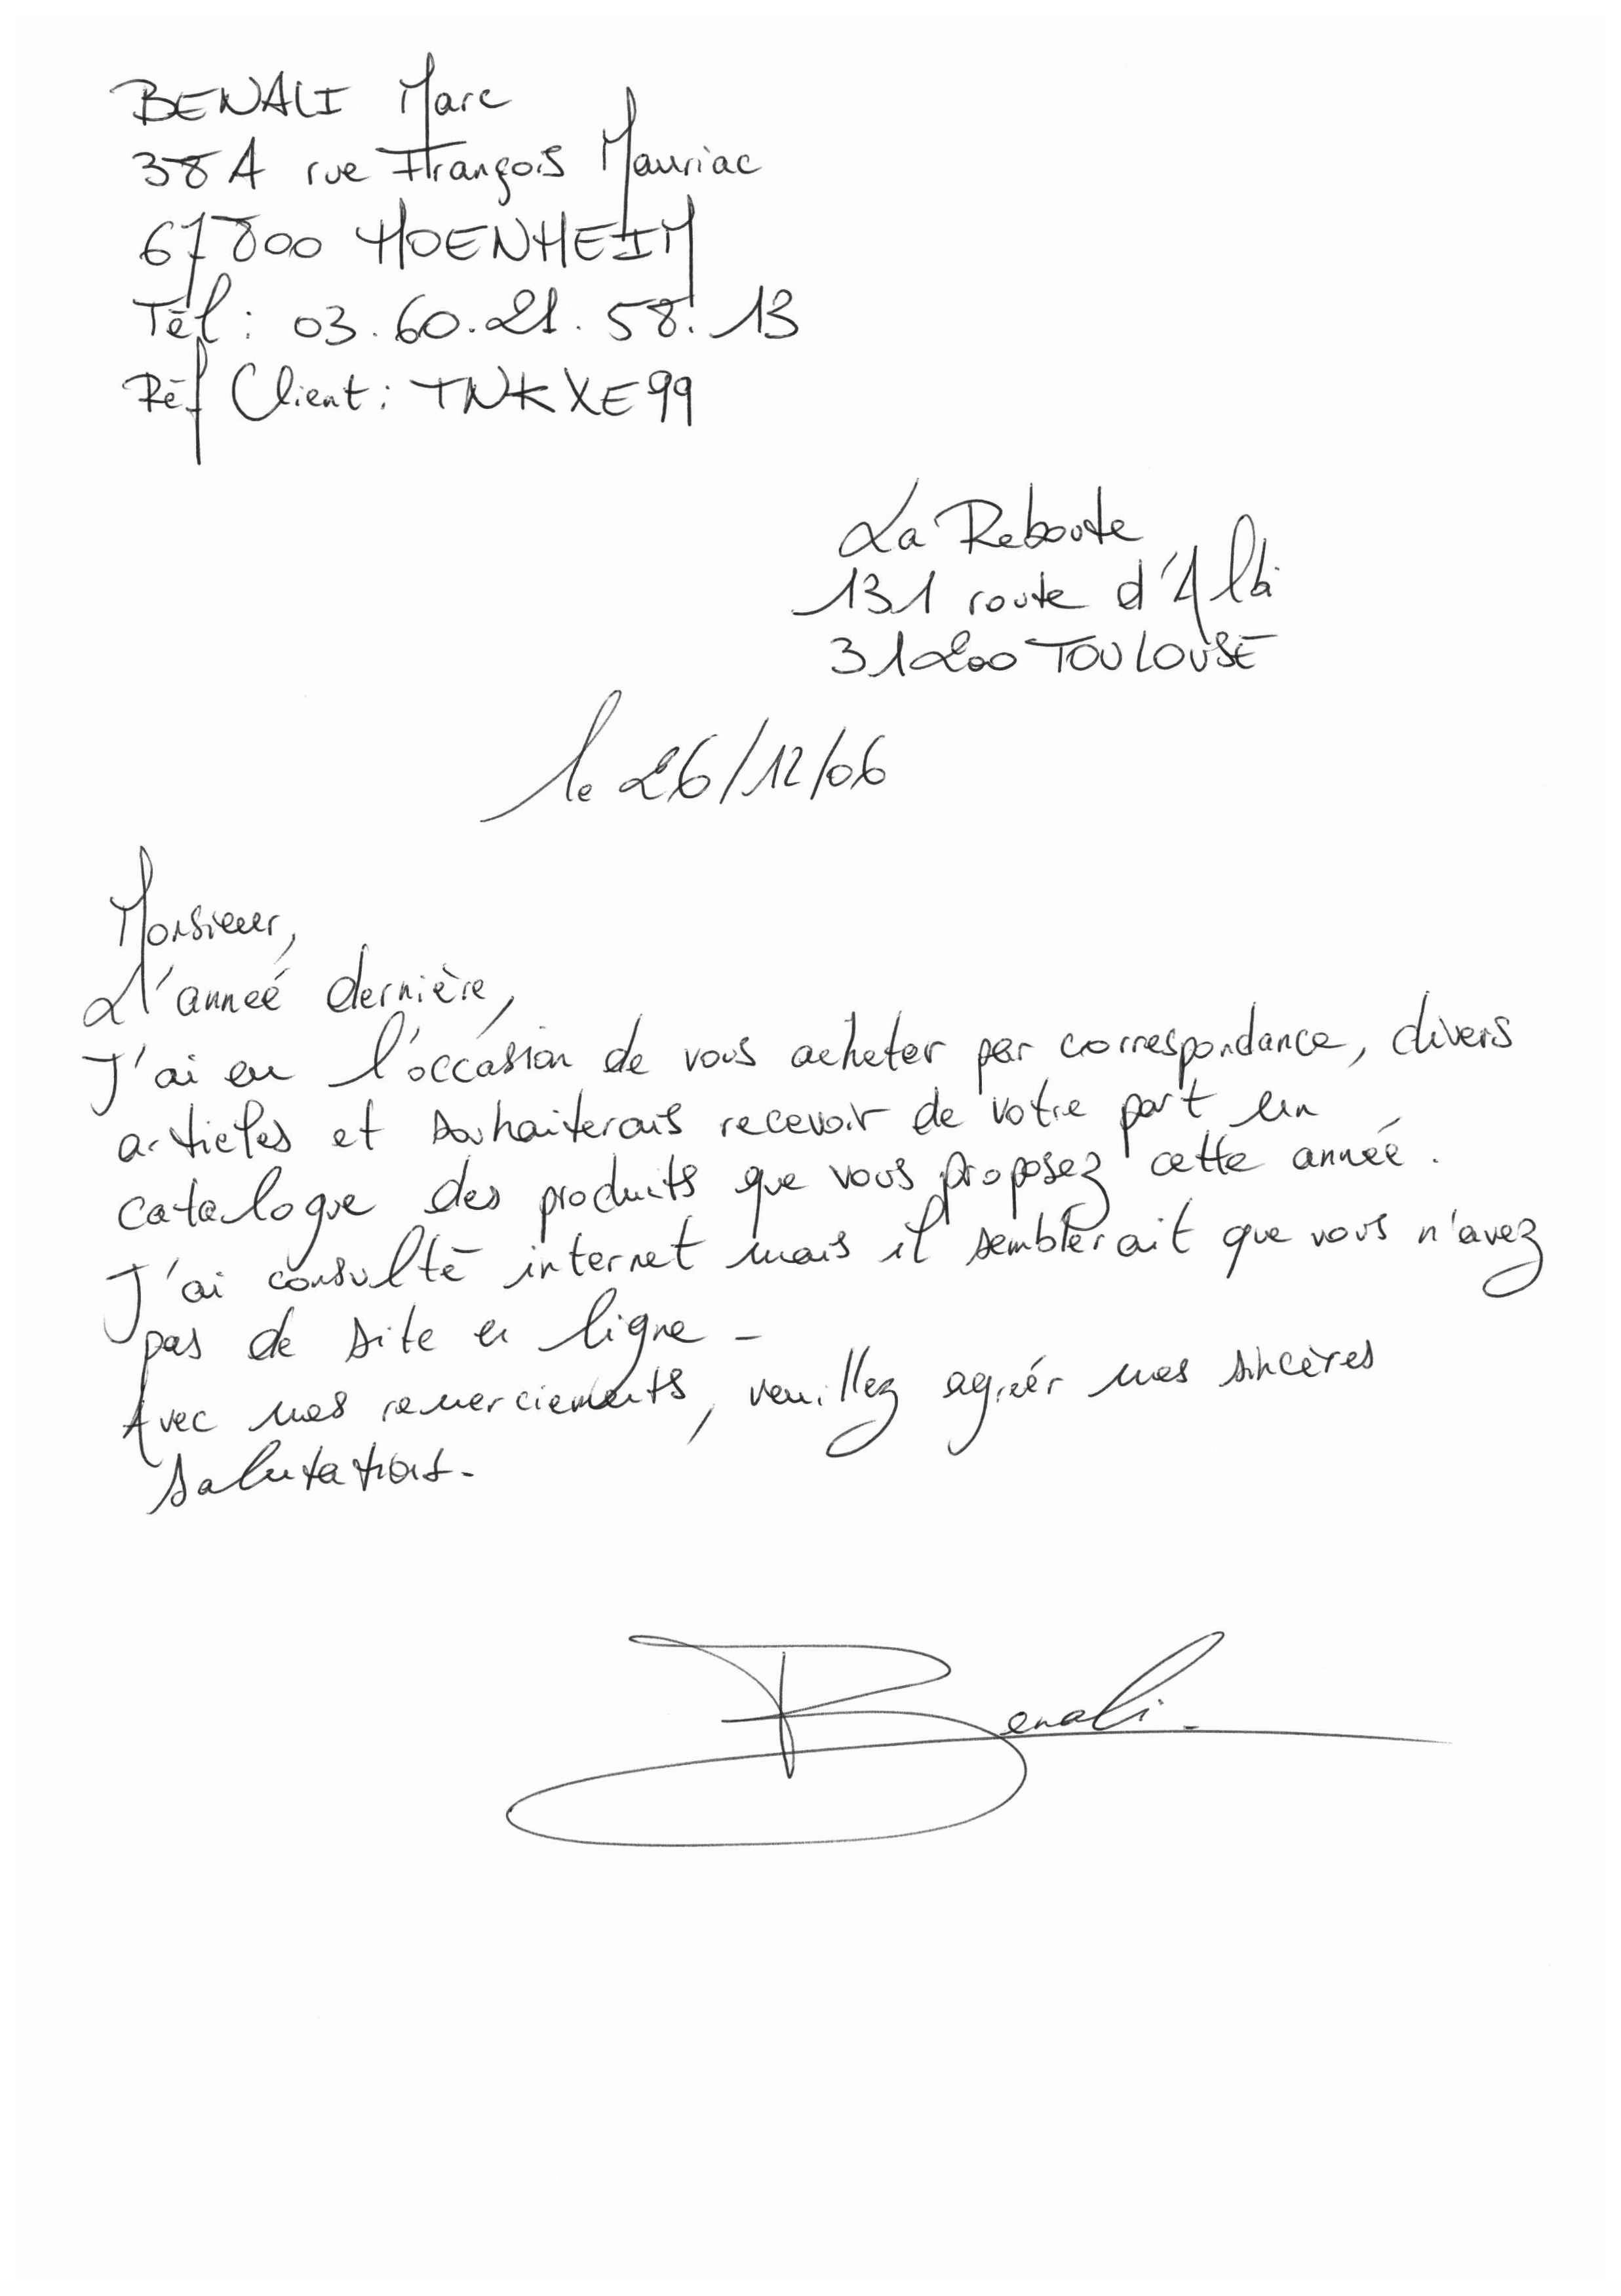 BENALI Marc
38A rue François Mauriac
67800 HOENHEIM
Tél : 03.60.21.58.13
Réf Client : TNKXE99
La Reboute
131 route d'Albi
31200 TOULOUSE
le 26/12/06
Monsieur,
L'année dernière,
J'ai eu l'occasion de vous acheter par correspondance, divers
articles et souhaiterais recevoir de votre part un
catalogue des produits que vous proposez cette année.
J'ai consulté internet mais il semblerait que vous n'avez
pas de site en ligne -
Avec mes remerciements, veuillez agréér mes sincères
salutations.
Benali.